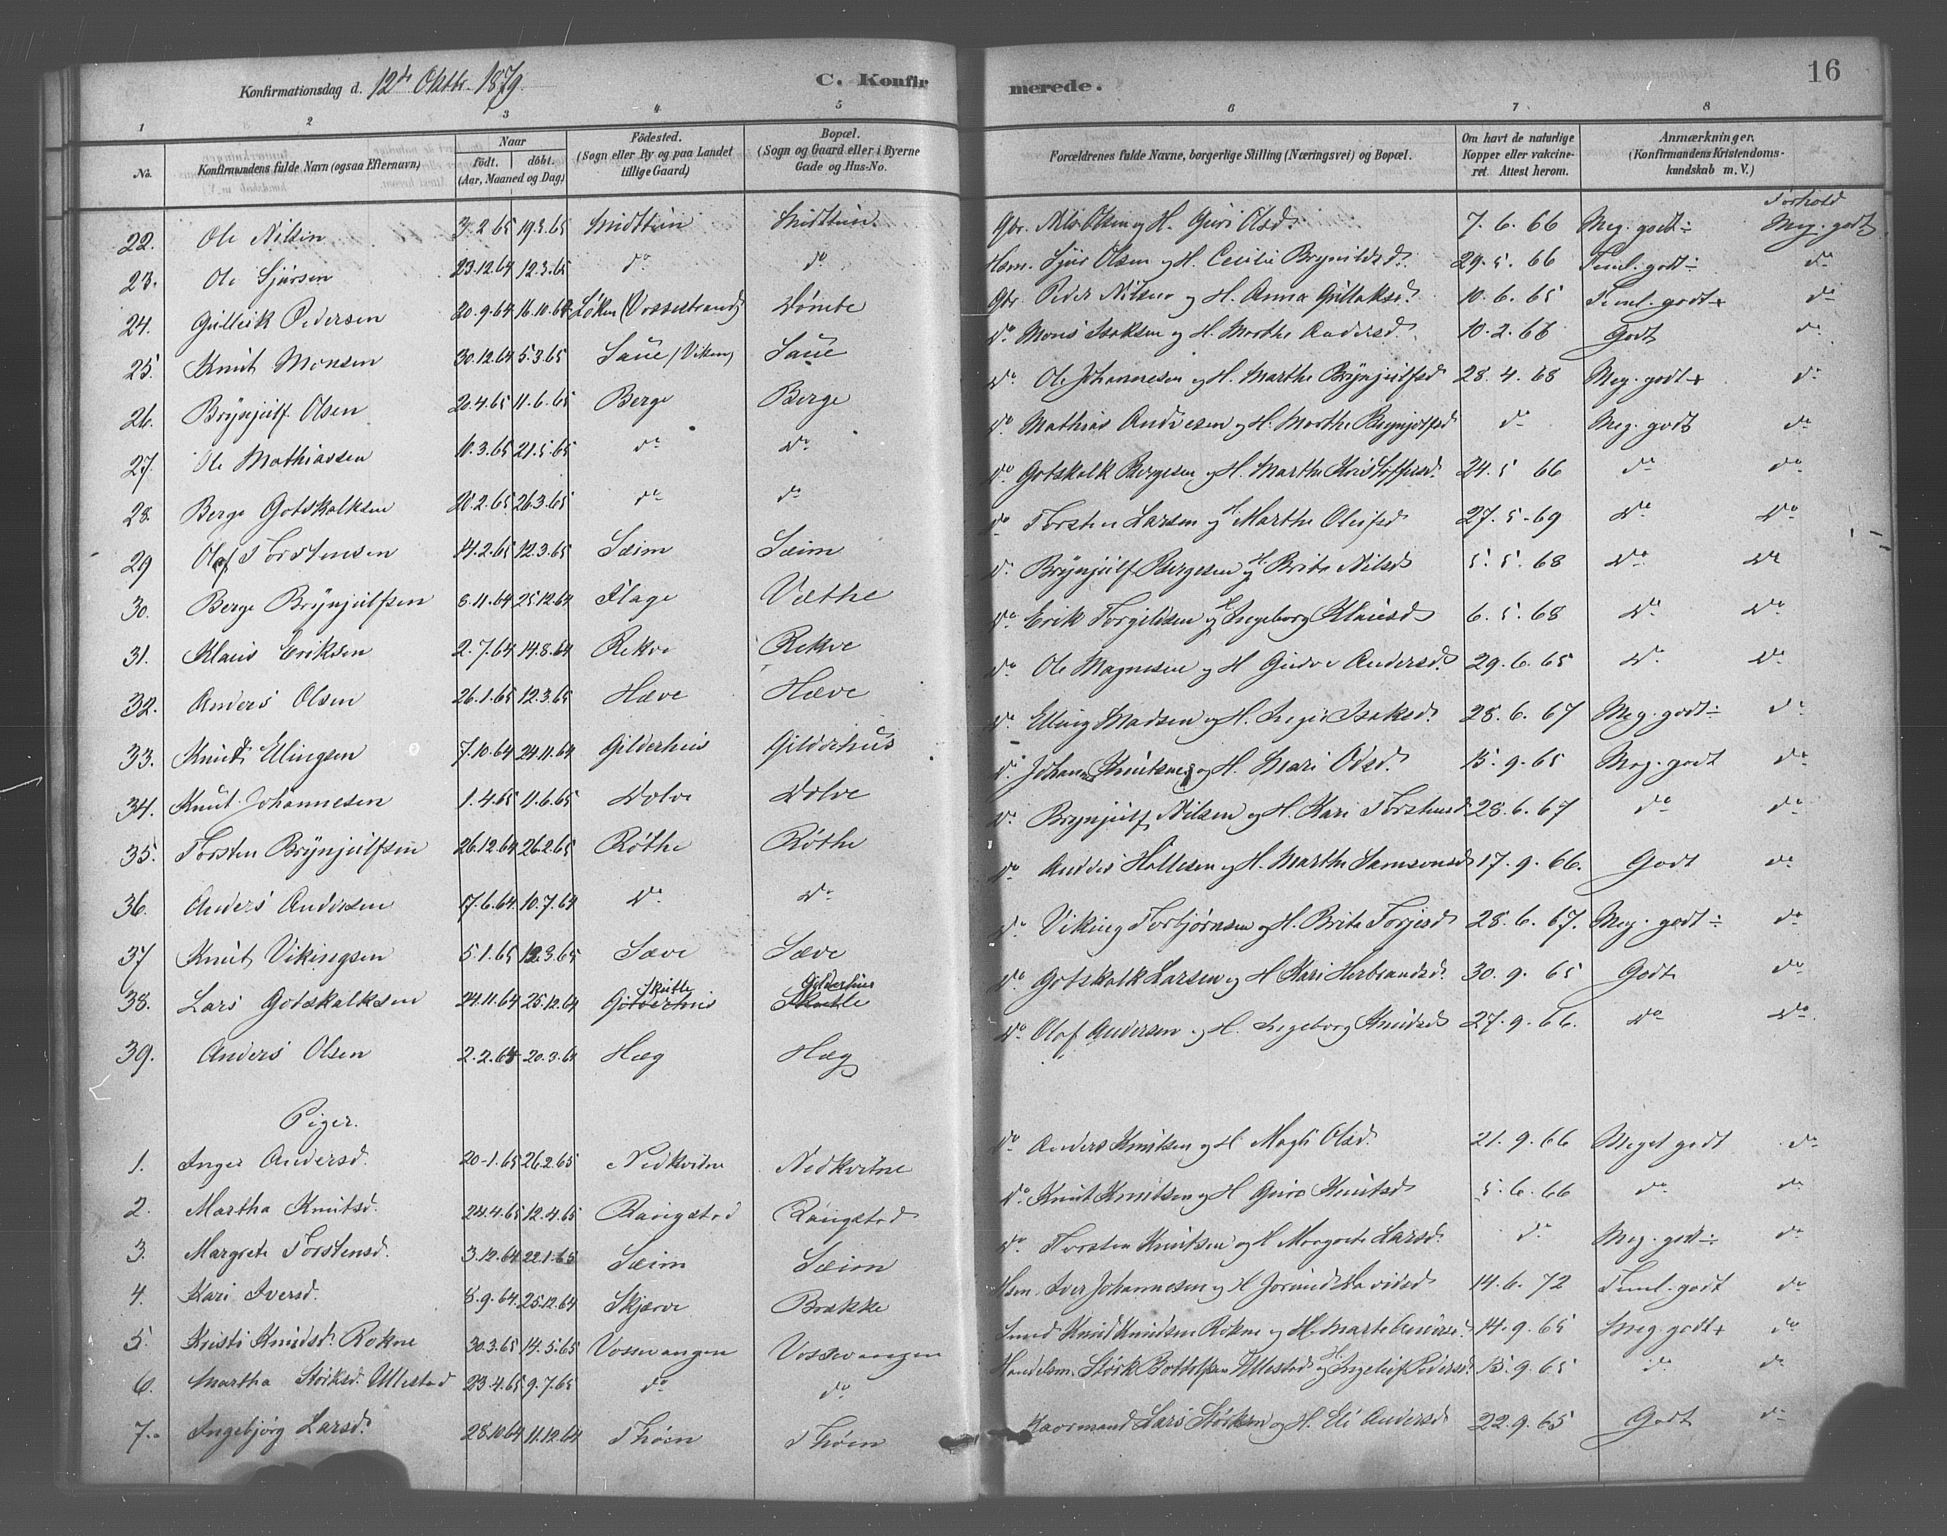 Konfirmationsdag d. 12te Oktbr. 1879. C. Konfirmerede. 16
1 2 3 4 5 6 7 8
No. Konfirmandens fulde Navn (ogsaa Efternavn) Naar födt. döbt. (Aar, Maaned og Dag) Födested. (Sogn eller By og paa Landet tillige Gaard) Bopæl. (Sogn og Gaard eller i Byerne Gade og Hus-No. Forældrenes fulde Navne, borgerlige Stilling (Næringsvei) og Bopæl. Om havt de naturlige Kopper eller vakcineret. Attest herom. Anmærkninger. (Konfirmandens Kristendomskundskab m. V.)
Forhold
22. Ole Nilsen 3.2.65 19.3.65 Midttun Midttun Gbr. Nils Olsen og H. Guri Olsd. 7.6.66 Meg. godt ÷ Meg. godt
23. Ole Sjursen 23.12.64 12.3.65 do do Hsm. Sjur Olsen og H. Cecilie Brynildsd. 29.5.66 Teml. godt ÷ do
24. Gulleik Pedersen 20.9.64 16.10.64 Løken (Vossestrand) Dömbe Gbr. Peder Nilsen og H. Anna Gullaksd. 10.6.65 Teml. godt + do
25. Knut Monsen 30.12.64 5.3.65 Saue (Viken) Saue do Mons Isaksen og H. Marthe Andersd. 10.2.66 Godt do
26. Brynjulf Olsen 20.4.65 11.6.65 Berge Berge do Ole Johannesen og H. Marthe Brynjulfsd 28.4.68 Meg. godt + do
27. Ole Mathiasen 10.3.65 21.5.65 do do do Mathias Andersen og H. Marthe Brynjulfsd do Meg. godt do
28. Berge Gotskalksen 20.2.65 26.3.65 do do do Gotskalk Bergesen og H. Martha Kristoffersd. 24.5 66 do do
29 Olaf Torstensen 14.2.65 12.3.65 Sæim Sæim do Torsten Larsen og H. Martha Olafsd 27.5.69 do do
30. Berge Brynjulfsen 8.11.64 25.12.64 Flage Væthe do Brynjulf Bergesen og H. Brita Nilsd 5.5.68 do do
31. Klaus Eriksen 2.7.64 14.8.64 Rekve Rekve do Erik Torgilsen og H. Ingeborg Klausd 6.5.68 do do
32. Anders Olsen 26.1.65 12.3.65 Hæve Hæve do Ole Magnesen og H Gudve Andersd. 29.6.65 do do
33. Knut Ellingsen 7.10.64 24.11.64 Gilderhus Gilderhus do Elling Madsen og H. Inger Isaksd. 28.6.67 Meg. godt ÷ do
34. Knut Johannesen 1.4.65 11.6.65 Dolve Dolve do Johannes Knutsen og H. Mari Odsd. 15.9.65 Meg. godt do
35. Torsten Brynjulfsen 26.12.64 26.2.65 Røthe Røthe do Brynjulf Nilsen og H. Kari Torstensd 28.6.67 do do
36. Anders Andersen 17.6.64 10.7.64 do do do Anders Hollesen og H. Marthe Samsonsd 17.9.66. Godt do
37 Knut Vikingsen 5.1.65 12.3.65 Sæve Sæve do Viking Torbjørnsen og H. Brita Torjisd 28.6.67. Meg. godt ÷ do
38. Lars Gotskalksen 24.11.64 25.12.64 Skutle Gilderhus Gilderhus Skutle do Gotskalk Larsen og H Kari Herbrandsd. 30.9.65 Godt do
39. Anders Olsen 2.2.64 20.3.64 Hæg Hæg do Olaf Andersen og H. Ingeborg Knudsd 27.9.66. do do
Piger.
1. Inger Andersd. 20.1.65 26.2.65 Nedkvitne Nedkvitne do Anders Knutsen og H. Magli Olsd. 21.9.66 Meget godt do
2. Martha Knutsd. 24.4.65 12.4.65 Rangstad Rangstad do Knut Knutsen og H Guro Knutsd 5.6.66 do do
3. Margrete Torstensd. 3.12.64 22.1.65 Sæim Sæim do Thorsten Knutsen og H Margrete Larsd. do Meg. god ÷ do
4. Kari Iversd. 8.9.64 25.12.64 Skjærve Brække Hsm. Iver Johannesen og H Jorund Davidsd 14.6.72 Teml. godt do
5. Kristi Knudsd. Rokne 30.3.65 14.5.65 Vossevangen Vossevangen Smed Knud Knudsen Rokne og H. Marte Andersd. 14.9.65 Meg. godt + do
6. Martha Störksd. Ullestad 23.4.65 9.7.65 do do Handelsm. Störk Botolfsen Ullestad og H. Ingeleif Pedersd. 15.9.65 do do
7. Ingebjörg Larsd. 28.10.64 11.12.64 Thöen Thöen Kaarmand Lars Störksen og H. Eli Andersd 22.9.65 Godt do